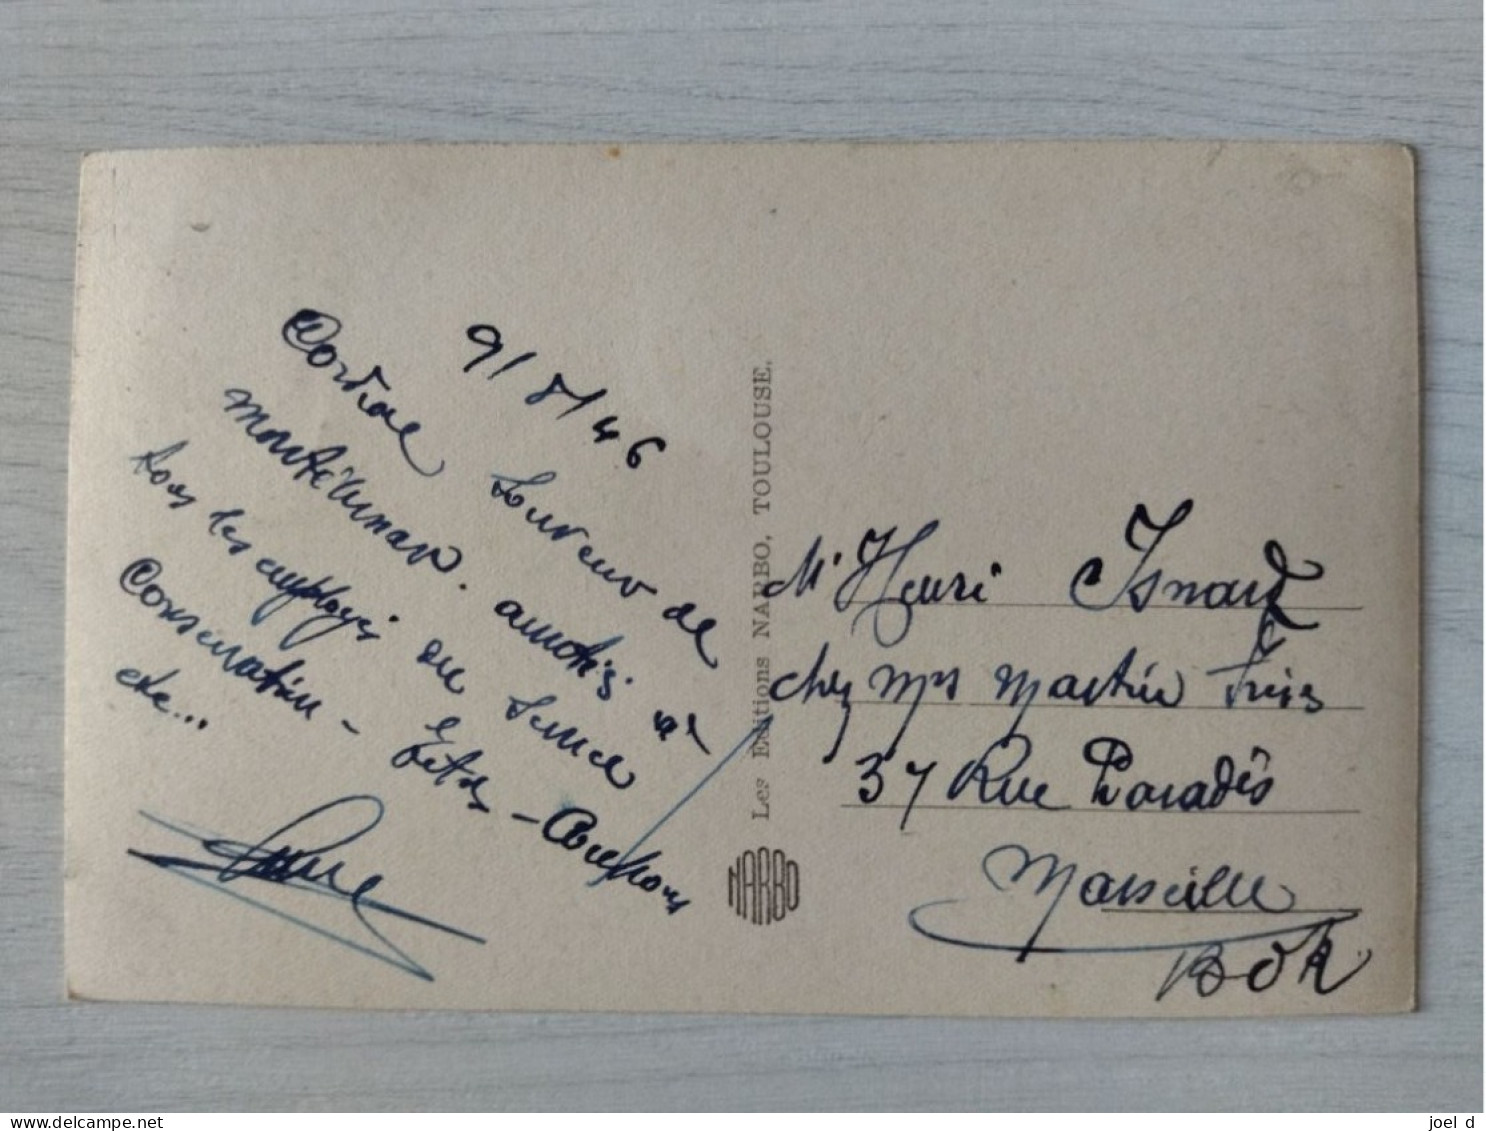 9/8/46
Cordial Souvenir de
Montélimar. amitiés à
tous les employés du Service
Conservation - Titres - Coupons
etc...
Les Editions NARBO, TOULOUSE.
NARBO
Mr Henri Isnard
chez Mrs Martin Frères
37 Rue Paradis
Marseille
BdR
delcampe.net
joel d